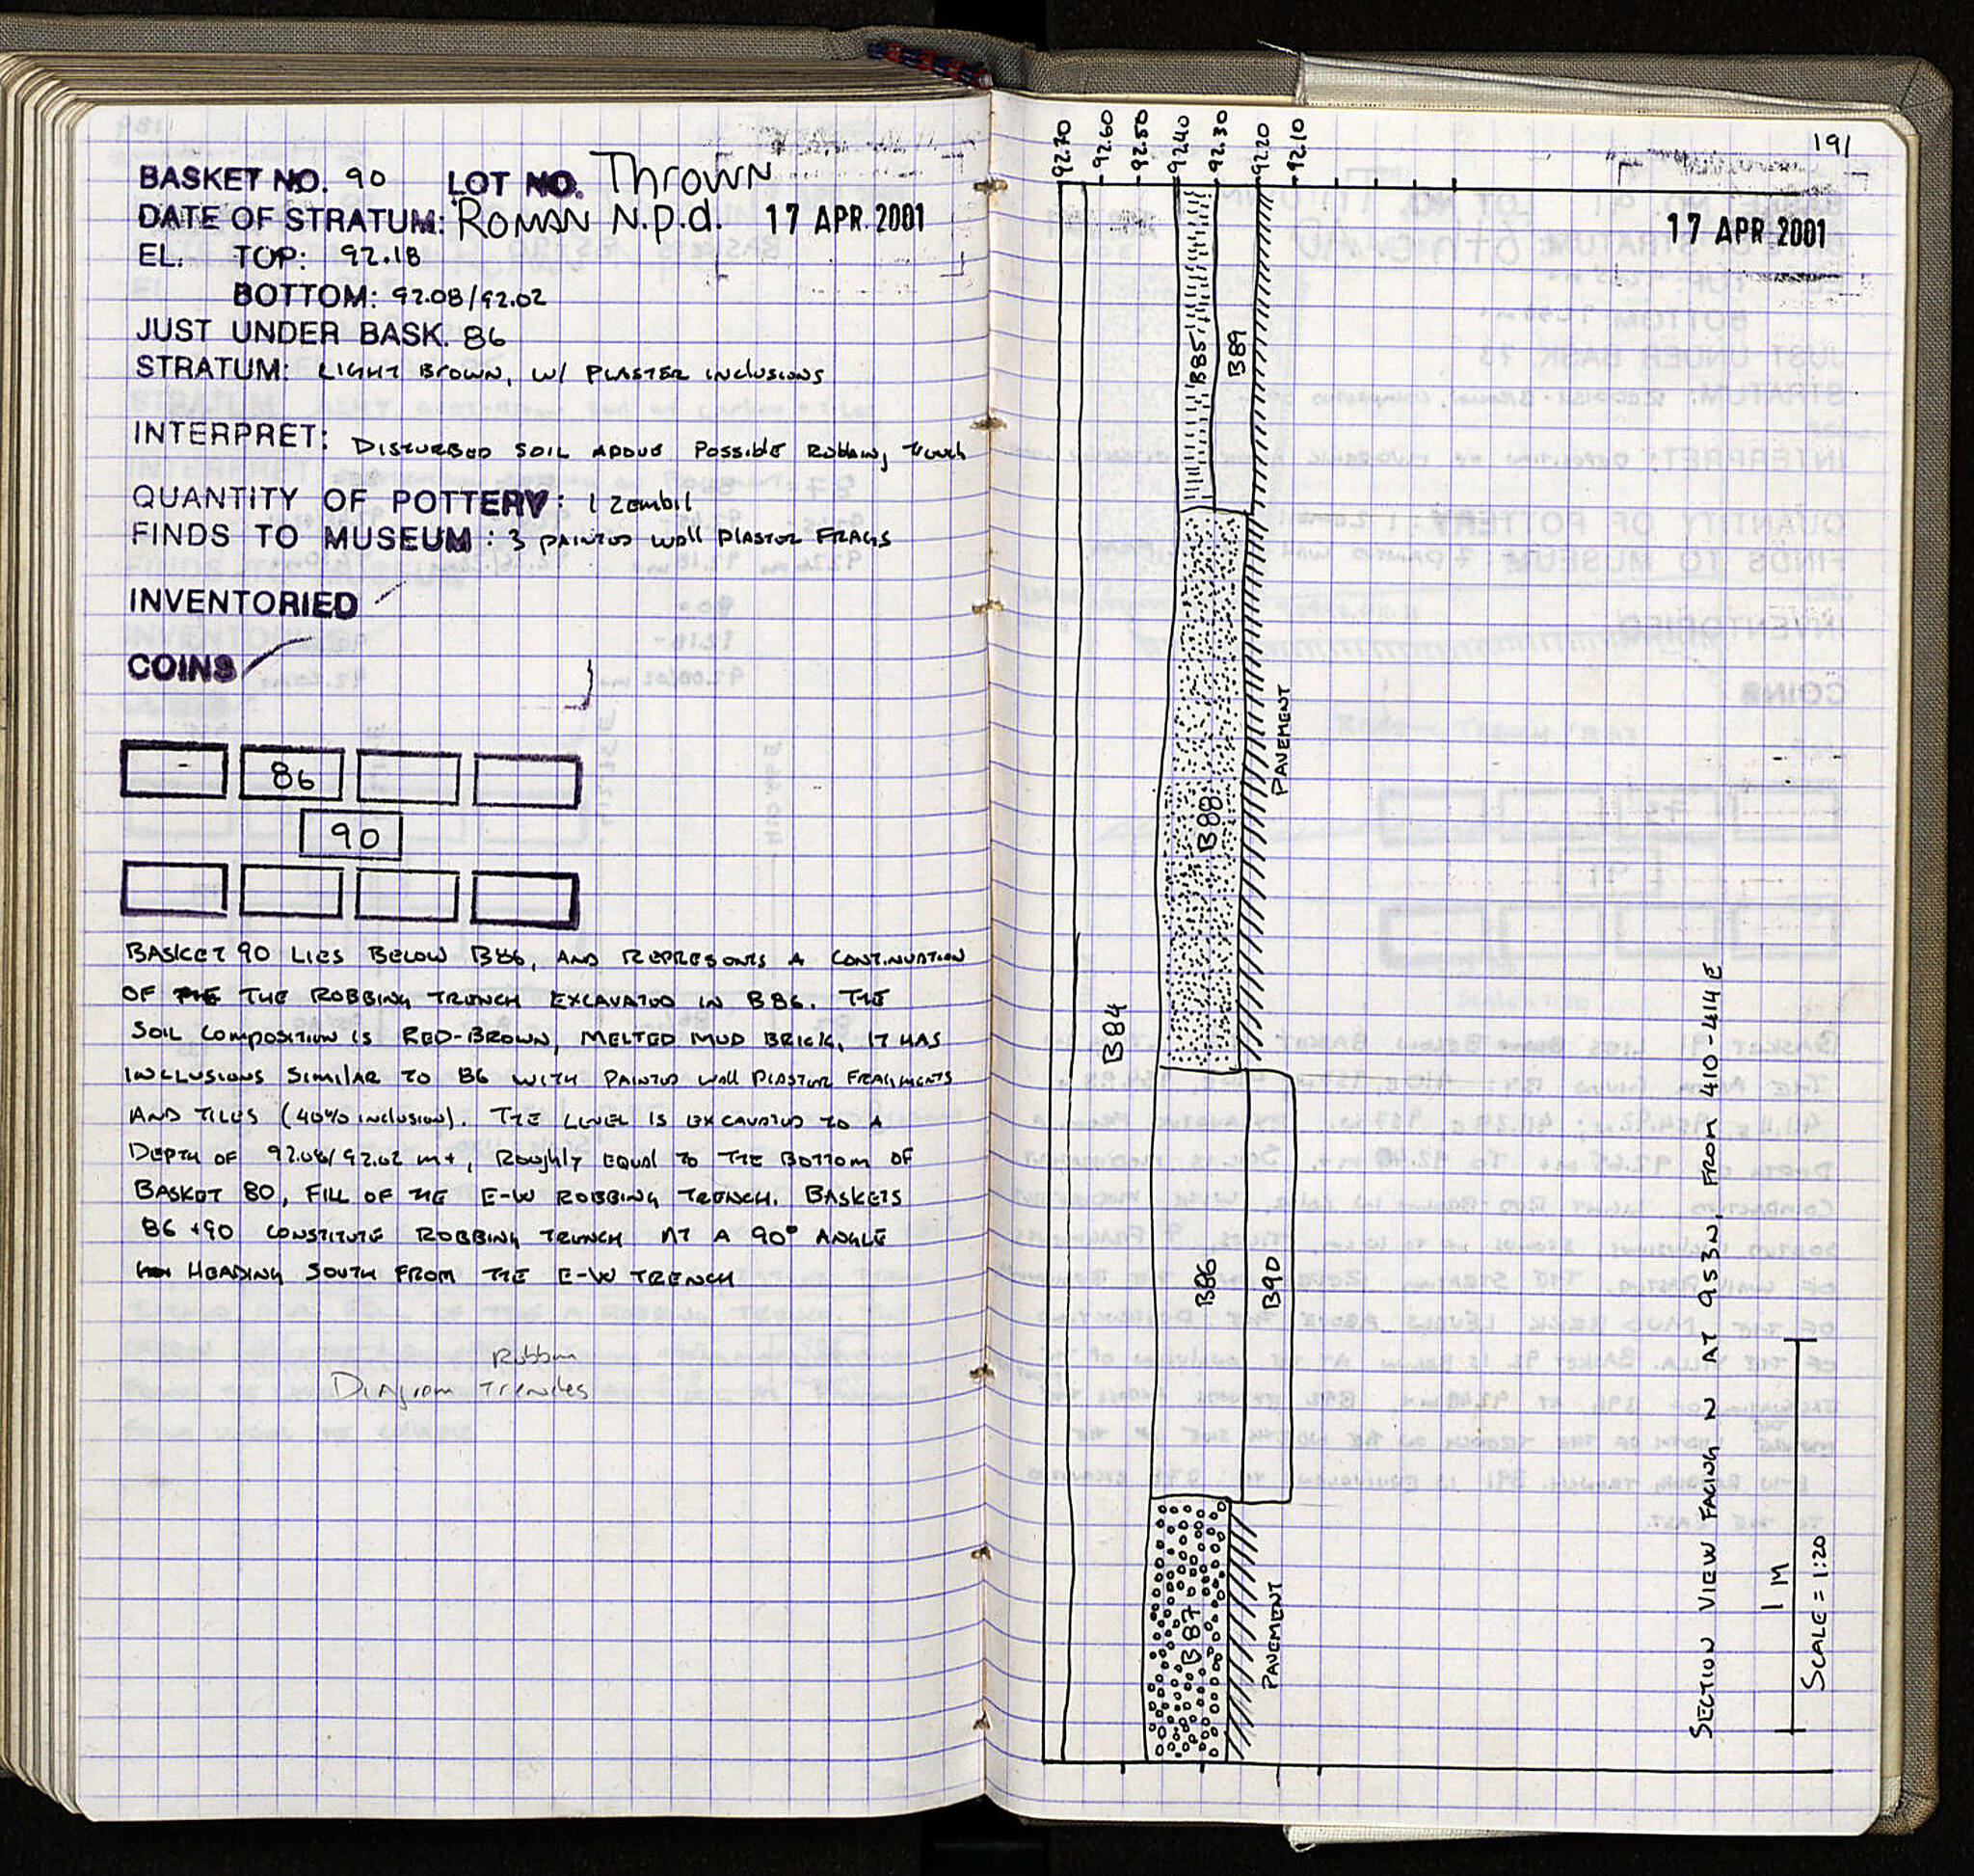 BASKET NO. 90 LOT NO. Thrown
DATE OF STRATUM: ROMAN N.P.d. 17 APR. 2001
EL. TOP: 92.18
BOTTOM: 92.08/92.02
JUST UNDER BASK. 86
STRATUM: LIGHT BROWN, W/ PLASTER INCLUSIONS
INTERPRET: DISTURBED SOIL ABOVE POSSIBLE ROBBING TRENCH
QUANTITY OF POTTERY: 1 ZEMBIL
FINDS TO MUSEUM: 3 PAINTED WALL PLASTER FRAGS
INVENTORIED
COINS
- 86
90
BASKET 90 LIES BELOW B86, AND REPRESENTS A CONTINUATION
OF THE THE ROBBING TRENCH EXCAVATED IN B86. THE
SOIL COMPOSITION IS RED-BROWN, MELTED MUD BRICK, IT HAS
INCLUSIONS SIMILAR TO 86 WITH PAINTED WALL PLASTER FRAGMENTS
AND TILES (40% INCLUSION). THE LEVEL IS EXCAVATED TO A
DEPTH OF 92.08/92.02 m+, ROUGHLY EQUAL TO THE BOTTOM OF
BASKET 80, FILL OF THE E-W ROBBING TRENCH. BASKETS
86 + 90 CONSTITUTE ROBBING TRENCH AT A 90° ANGLE
HEADING SOUTH FROM THE E-W TRENCH
Robbing
Diagram Trenches
191
17 APR. 2001
92.70
92.60
92.50
92.40
92.30
92.20
92.10
B85
B89
B88
PAVEMENT
B84
B86
B90
B87
PAVEMENT
SECTION VIEW FACING N AT 953N, FROM 410-414E
1 M
SCALE = 1:20